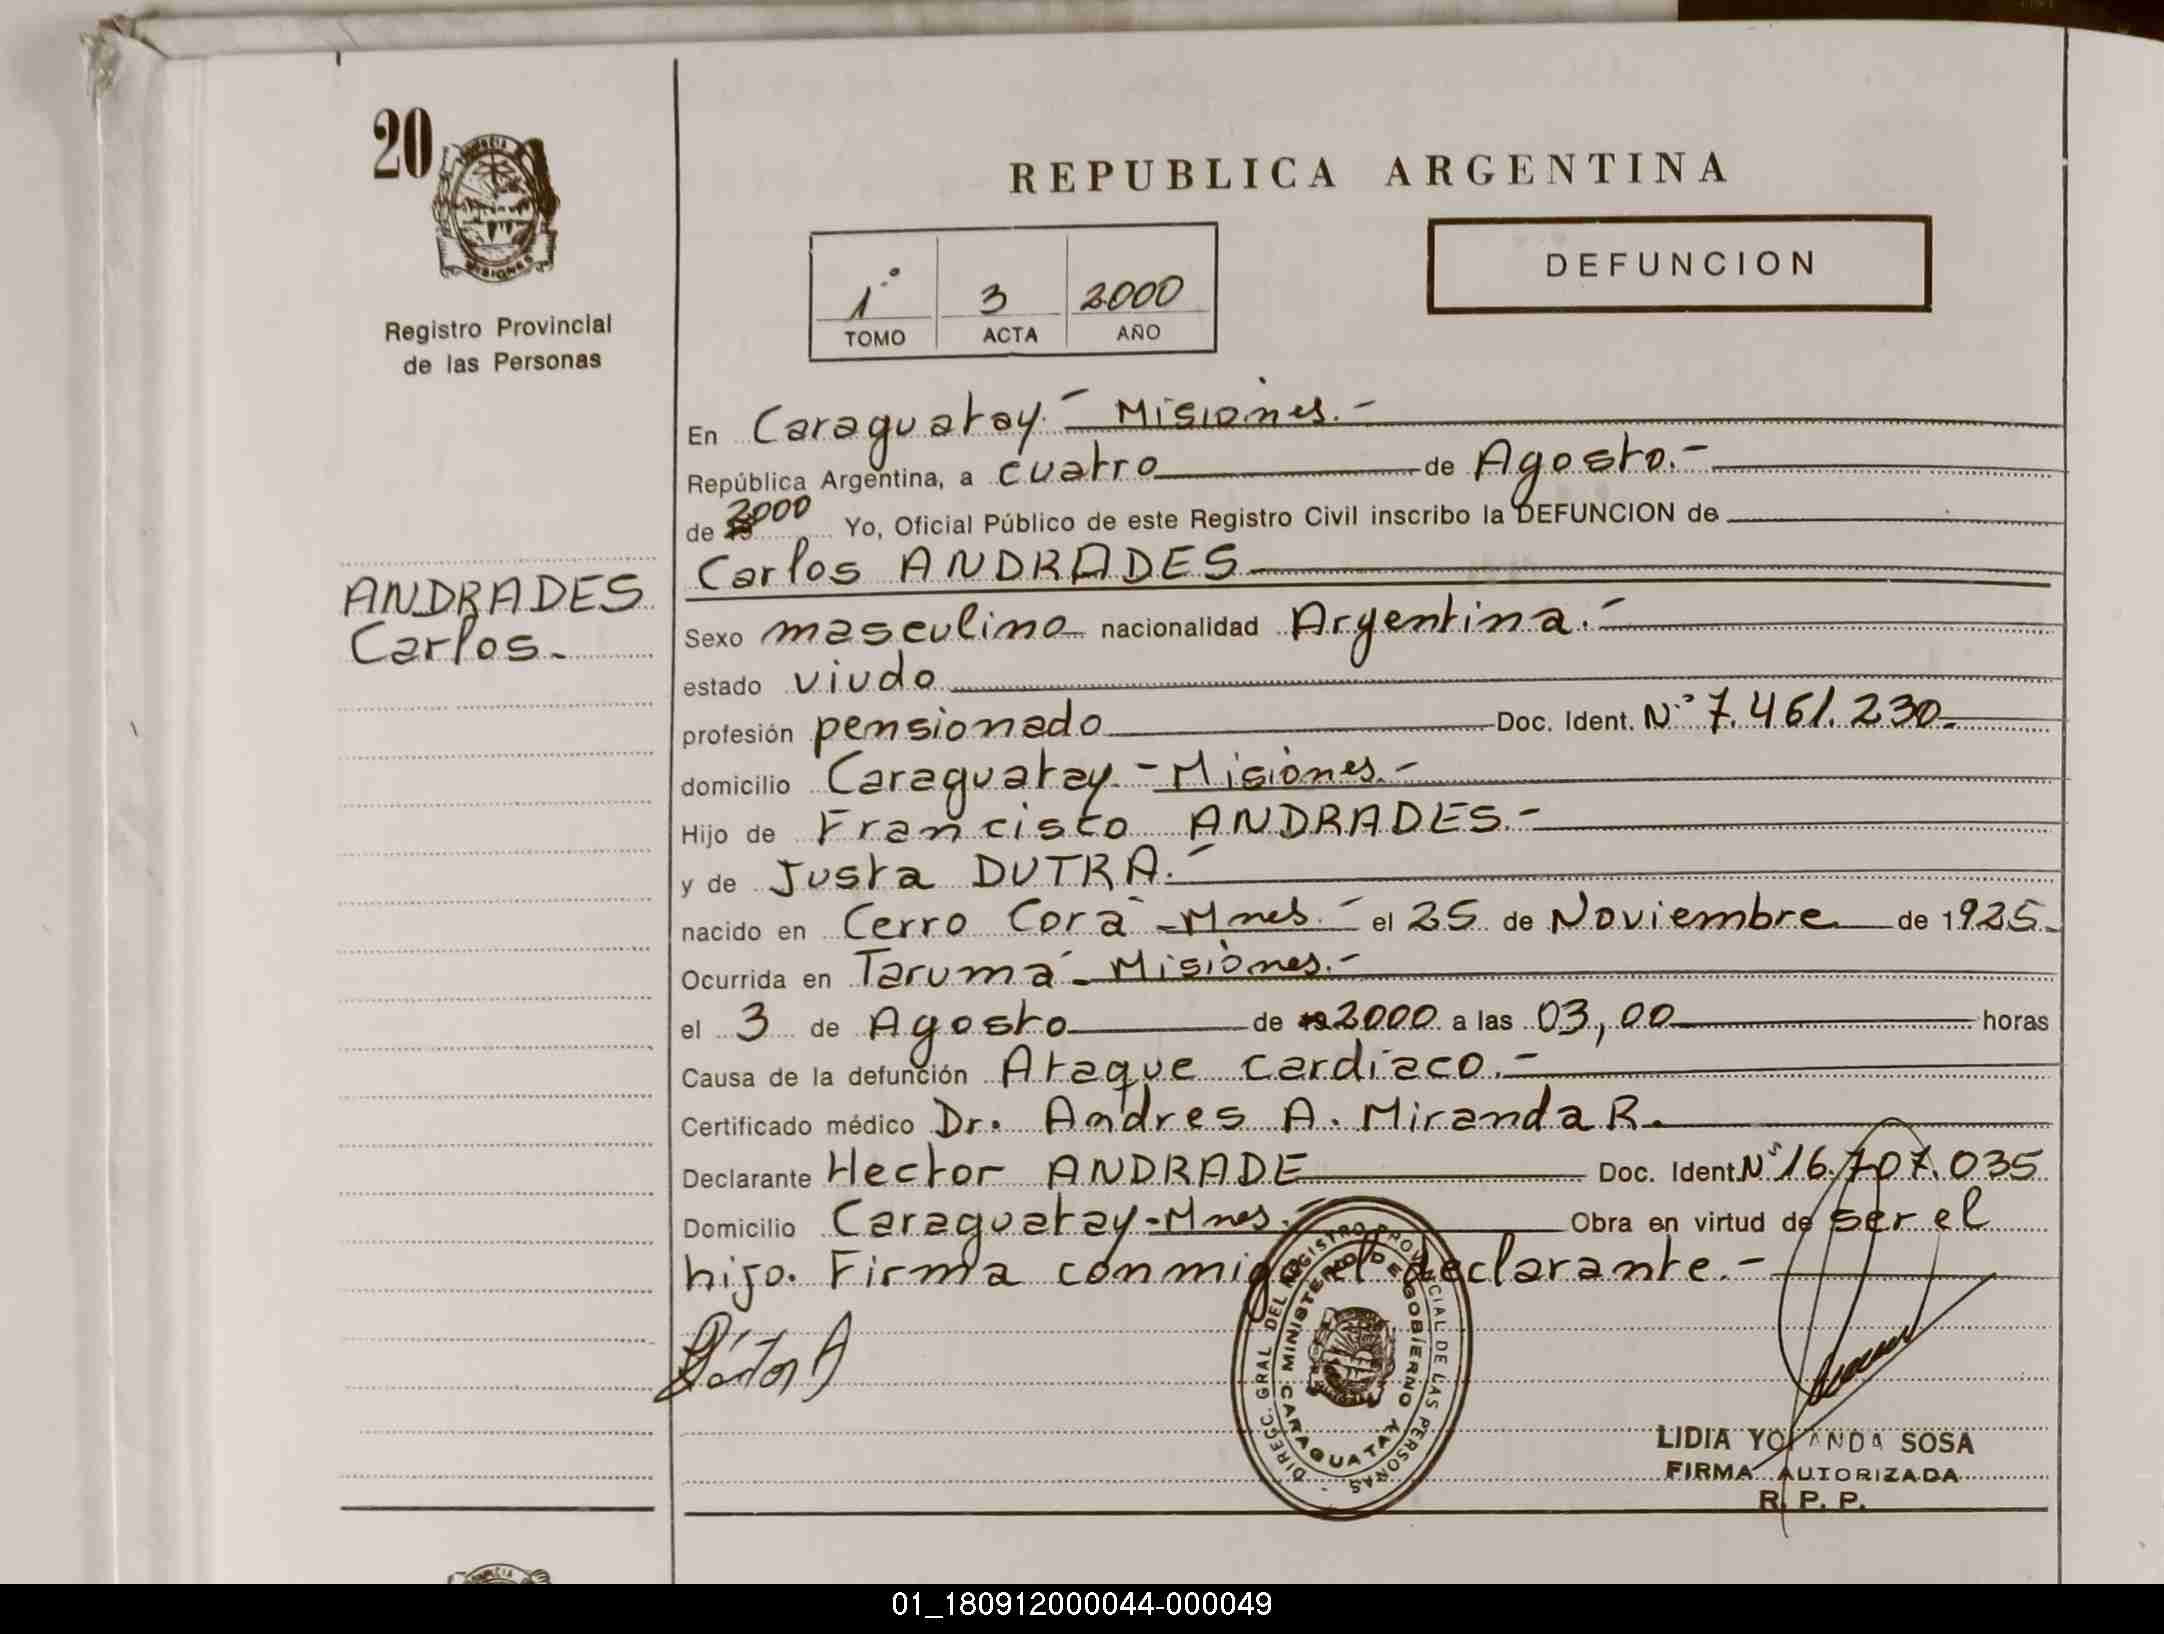 20
PROVINCIA
MISIONES
Registro Provincial
de las Personas
ANDRADES
Carlos.-
REPUBLICA ARGENTINA
1° 3 2000
TOMO ACTA AÑO
DEFUNCION
En Caraguatay.- Misiones.-
República Argentina, a cuatro de Agosto.-
de 2000 Yo, Oficial Público de este Registro Civil inscribo la DEFUNCION de
Carlos ANDRADES
Sexo masculino nacionalidad Argentina.-
estado viudo
profesión pensionado Doc. Ident. N° 7.461.230-
domicilio Caraguatay-Misiones.-
Hijo de Francisco ANDRADES.-
y de Justa DUTRA.-
nacido en Cerro Corá-Mnes.- el 25 de Noviembre de 1925.-
Ocurrida en Tarumá-Misiones.-
el 3 de Agosto de 2000 a las 03,00 horas
Causa de la defunción Ataque cardíaco.-
Certificado médico Dr. Andres A. Miranda R.
Declarante Hector ANDRADE Doc. Ident. N° 16.707.035
Domicilio Caraguatay-Mnes.- Obra en virtud de ser el
hijo. Firma conmigo el declarante.-
DIREGC. GRAL DEL REGISTRO PROVINCIAL DE LAS PERSONAS.-
MINISTERIO DE GOBIERNO
CARAGUATAY
LIDIA YOLANDA SOSA
FIRMA AUTORIZADA
R. P. P.
01_180912000044-000049